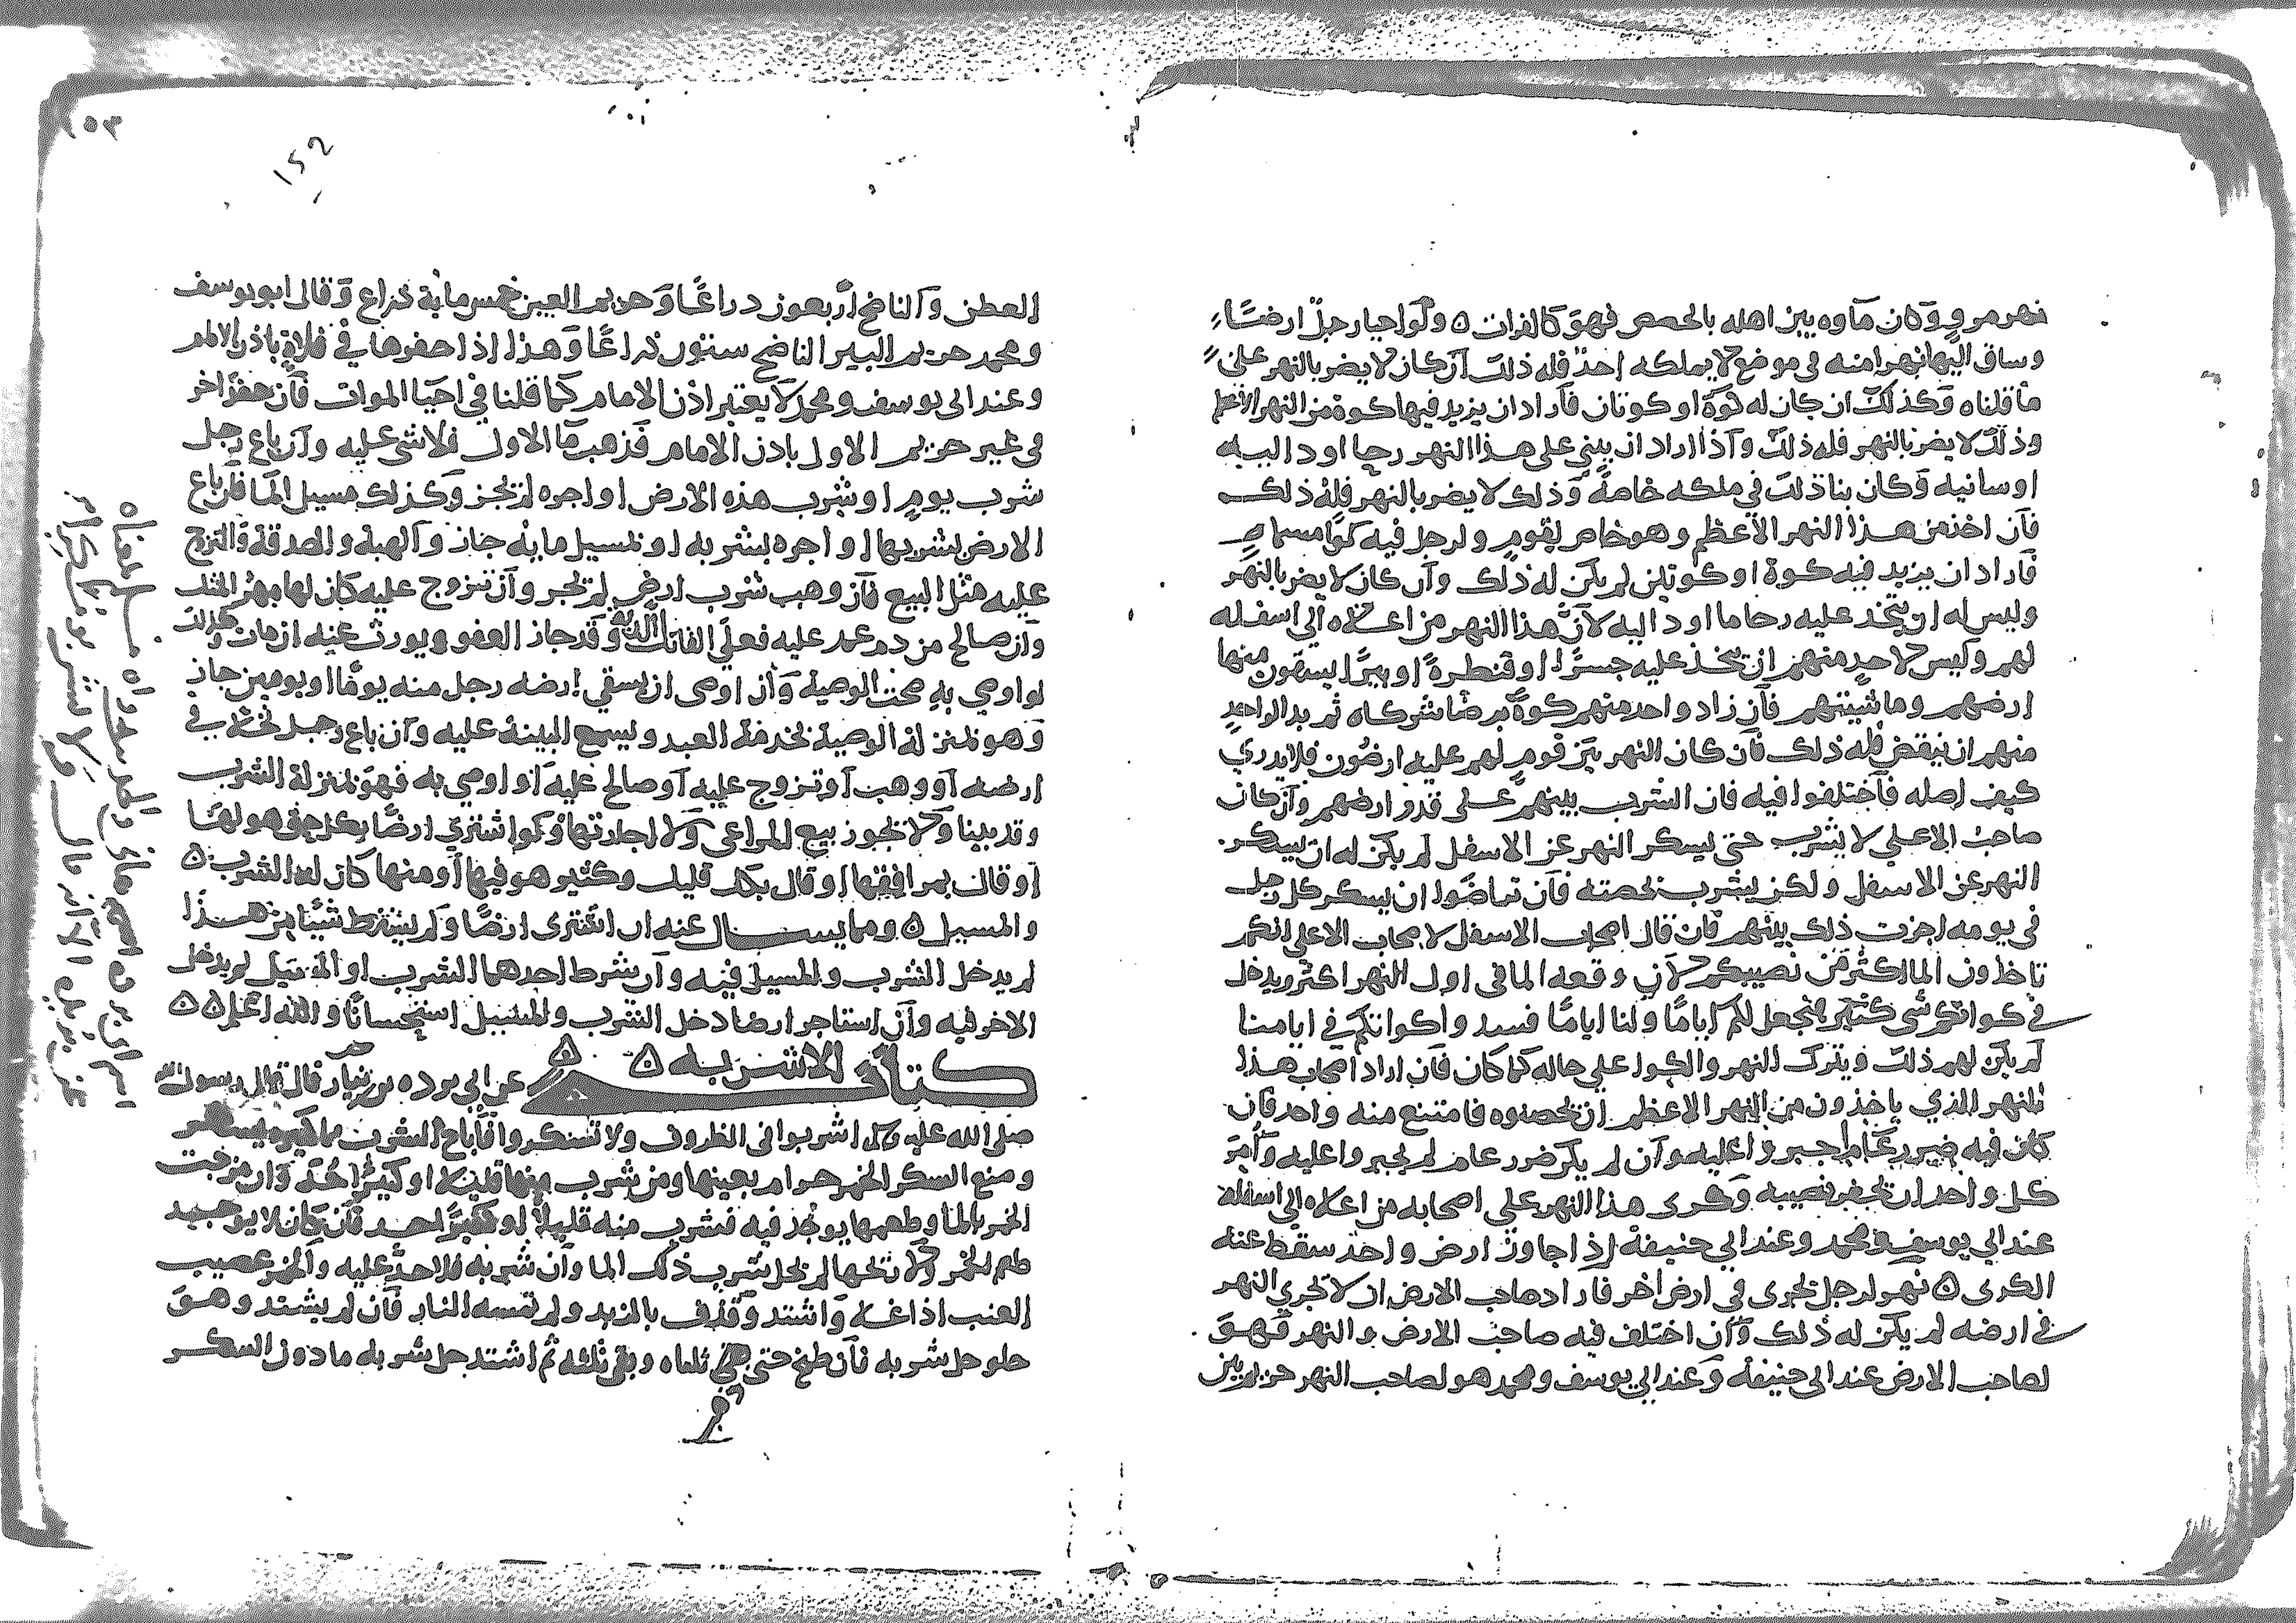 نهر مرو وكان ماوه بين اهله بالحصص فهو كالفرات ٥ ولو احيا رجل ارضا
وساق اليها نهرا منه في موضع لا يملكه احد فله ذلك ان كان لا يضر بالنهر على
ما قلناه وكذلك ان كان له كوة او كوتان فاراد ان يزيد فيها كوة من النهر الاعظم
وذلك لا يضر بالنهر فله ذلك واذا اراد ان يبني على هذا النهر رحا او داليه
او سانيه وكان بنا ذلك في ملكه خاصة وذلك لا يضر بالنهر فله ذلك
فان اخذ من هذا النهر الاعظم وهو خاص لقوم ولرجل فيه كوا مسماة
فاراد ان يزيد فيه كوة او كوتين لم يكن له ذلك وان كان لا يضر بالنهر
وليس له ان يتخذ عليه رحا ما او داليه لان هذا النهر من اعلاه الى اسفله
لهم وليس لاحد منهم ان يتخذ عليه جسرا او قنطرة او بيرا يستقون منها
ارضهم وماشيتهم فان زاد واحد منهم كوة برضا شركاه ثم بدا لواحد
منهم ان ينقض فله ذلك فان كان النهر بين قوم لهم عليه ارضون فلا يدري
كيف اصله فاختلفوا فيه فان الشرب بينهم على قدر ارضهم وان كان
صاحب الاعلى لا يشرب حتى يسكر النهر عن الاسفل لم يكن له ان يسكر
النهر عن الاسفل ولكن يشرب بحصته فان تراضوا ان يسكر كل رجل
في يومه اجزت ذلك بينهم فان قال اصحاب الاسفل لاصحاب الاعلى انكم
تاخذون الما اكثر من نصيبكم لان وقعه الما في اول النهر اكثر ويدخل
في كواتكم شي كثير فنجعل لكم اياما ولنا اياما فسد واكواتكم في ايامنا
لم يكن لهم ذلك ويترك النهر والكوا على حاله كما كان فان اراد اصحاب هذا
النهر الذي ياخذون من النهر الاعظم ان يحصنوه فامتنع منه واحد فان
كان فيه ضرر عام اجبروا عليه وان لم يكن ضرر عام لم يجبروا عليه وامر
كل واحد ان يحفر نصيبه وكرى هذا النهر على اصحابه من اعلاه الى اسفله
عند ابي يوسف ومحمد وعند ابي حنيفة اذا جاوز ارض واحد سقط عنه
الكرى ٥ نهر لرجل تجرى في ارض اخر فاراد صاحب الارض ان لا تجري النهر
في ارضه لم يكن له ذلك وان اختلف فيه صاحب الارض والنهر فهو
لصاحب الارض عند ابي حنيفة وعند ابي يوسف ومحمد هو لصاحب النهر حريم بين
١٥٢
العطن والناضح اربعون دراعا وحريم العين خمس ماية ذراع وقال ابو يوسف
ومحمد حريم البير الناضح ستون ذراعا وهذا اذا حفرها في فلاة باذن الامام
وعند ابي يوسف ومحمد لا يعتبر اذن الامام كما قلنا في احيا الموات فان حفر اخر
في غير حريم الاول باذن الامام فذهب ما الاول فلا شي عليه وان باع رجل
شرب يوم او شرب هذه الارض او اجره لم تجز وكذلك مسيل الما فان باع
الارض بشربها او اجره بشربه او بمسيل مايه جاز والهبة والصدقة والتزوج
عليه مثل البيع فان وهب شرب ارض لم تجر وان تزوج عليه كان لها مهر المثل
وان صالح من دم عمد عليه فعلى القاتل الدية وقد جاز العفو ويورث عنه ان مات وكذلك
لو اوصي به صحت الوصية وان اوصى ان يسقي ارضه رجل منه يوما او يومين جاز
وهو بمنزلة الوصية بخدمة العبد ويسمع البينة عليه وان باع رجل في
ارضه او وهب او تزوج عليه او صالح عليه او اوصي به فهو بمنزلة الشرب
وقد بينا ولا تجوز بيع المراعى ولا اجارتها ولو اشترى ارضا بكل حق هو لها
او قال بمرافقها او قال بكل قليل وكثير هو فيها او منها كان له الشرب ٥
والمسيل ٥ ومما يسال عنه ان اشترى ارضا ولم يشترط شيئا من هذا
لم يدخل الشرب والمسيل فيه وان شرط احدهما الشرب او المسيل لم يدخل
الاخر فيه وان استاجر ارضا دخل الشرب والمسيل استحسانا والله اعلم ٥٥
كتاب الاشربه ٥ عن ابي برده بن نيار قال قال رسول الله
صلى الله عليه اشربوا في الظروف ولا تسكروا فاباح الشرب
ومنع السكر الخمر حرام بعينها ومن شرب منها قليلا او كثيرا حد وان مزجت
الخمر بالما وطعمها يوجد فيه فشرب منه قليلا او كثيرا حد فان كان لا يوجد
طعم الخمر ولا ريحها لم تحل شرب ذلك الما وان شربه فلا حد عليه والخمر عصير
العنب اذا غلا واشتد وقذف بالزبد ولم تمسه النار فان لم يشتد وهو
حلو حل شربه فان طبخ حتى ذهب ثلثاه وبقي ثلثه ثم اشتد حل شربه ما دون السكر